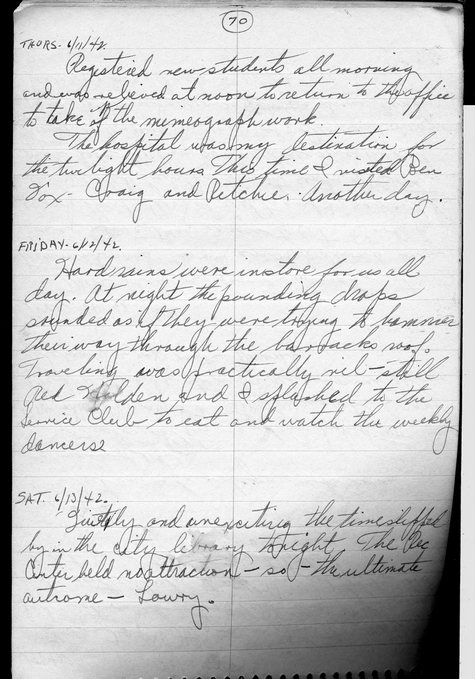 70
THURS- 6/11/42.
Registered new students all morning
and was relieved at noon to return to the office
to take off the memeograph work.
The hospital was my destination for
the twilight hours. This time I visited Ben
Fox - Craig and Ritchie. Another day.
FRIDAY- 6/12/42.
Hard rains were in store for us all
day. At night the pounding drops
sounded as if they were trying to hammer
their way through the barracks roof.
Traveling was practically nil - still
Red Holden and I splashed to the
Service Club to eat and watch the weekly
dancers
SAT. 6/13/42.
Quietly and unexciting the time slipped
by in the city library tonight. The Rec
Center held no attraction - so - the ultimate
outcome - Lowry.